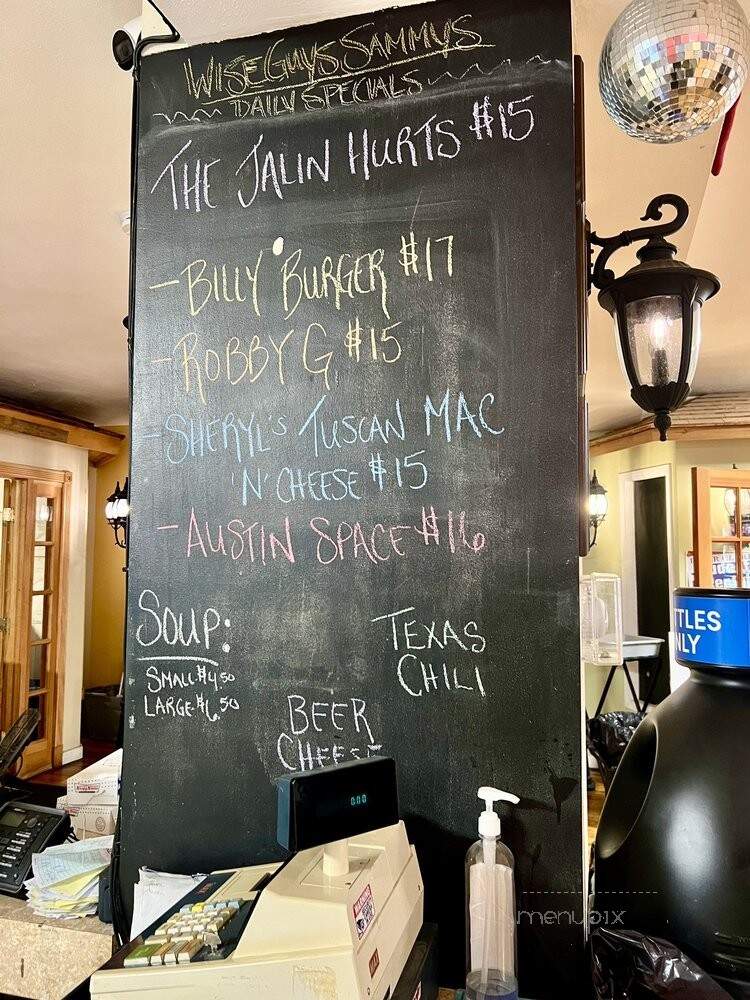 WISE GUYS SAMMYS
DAILY SPECIALS
THE JALIN HURTS $15
- BILLY BURGER $17
- ROBBY G $15
- SHERYL'S TUSCAN MAC
'N' CHEESE $15
- AUSTIN SPACE $16
SOUP:
SMALL $4.50
LARGE $6.50
TEXAS
CHILI
BEER
CHEESE
TTLES
NLY
0.00
menupix